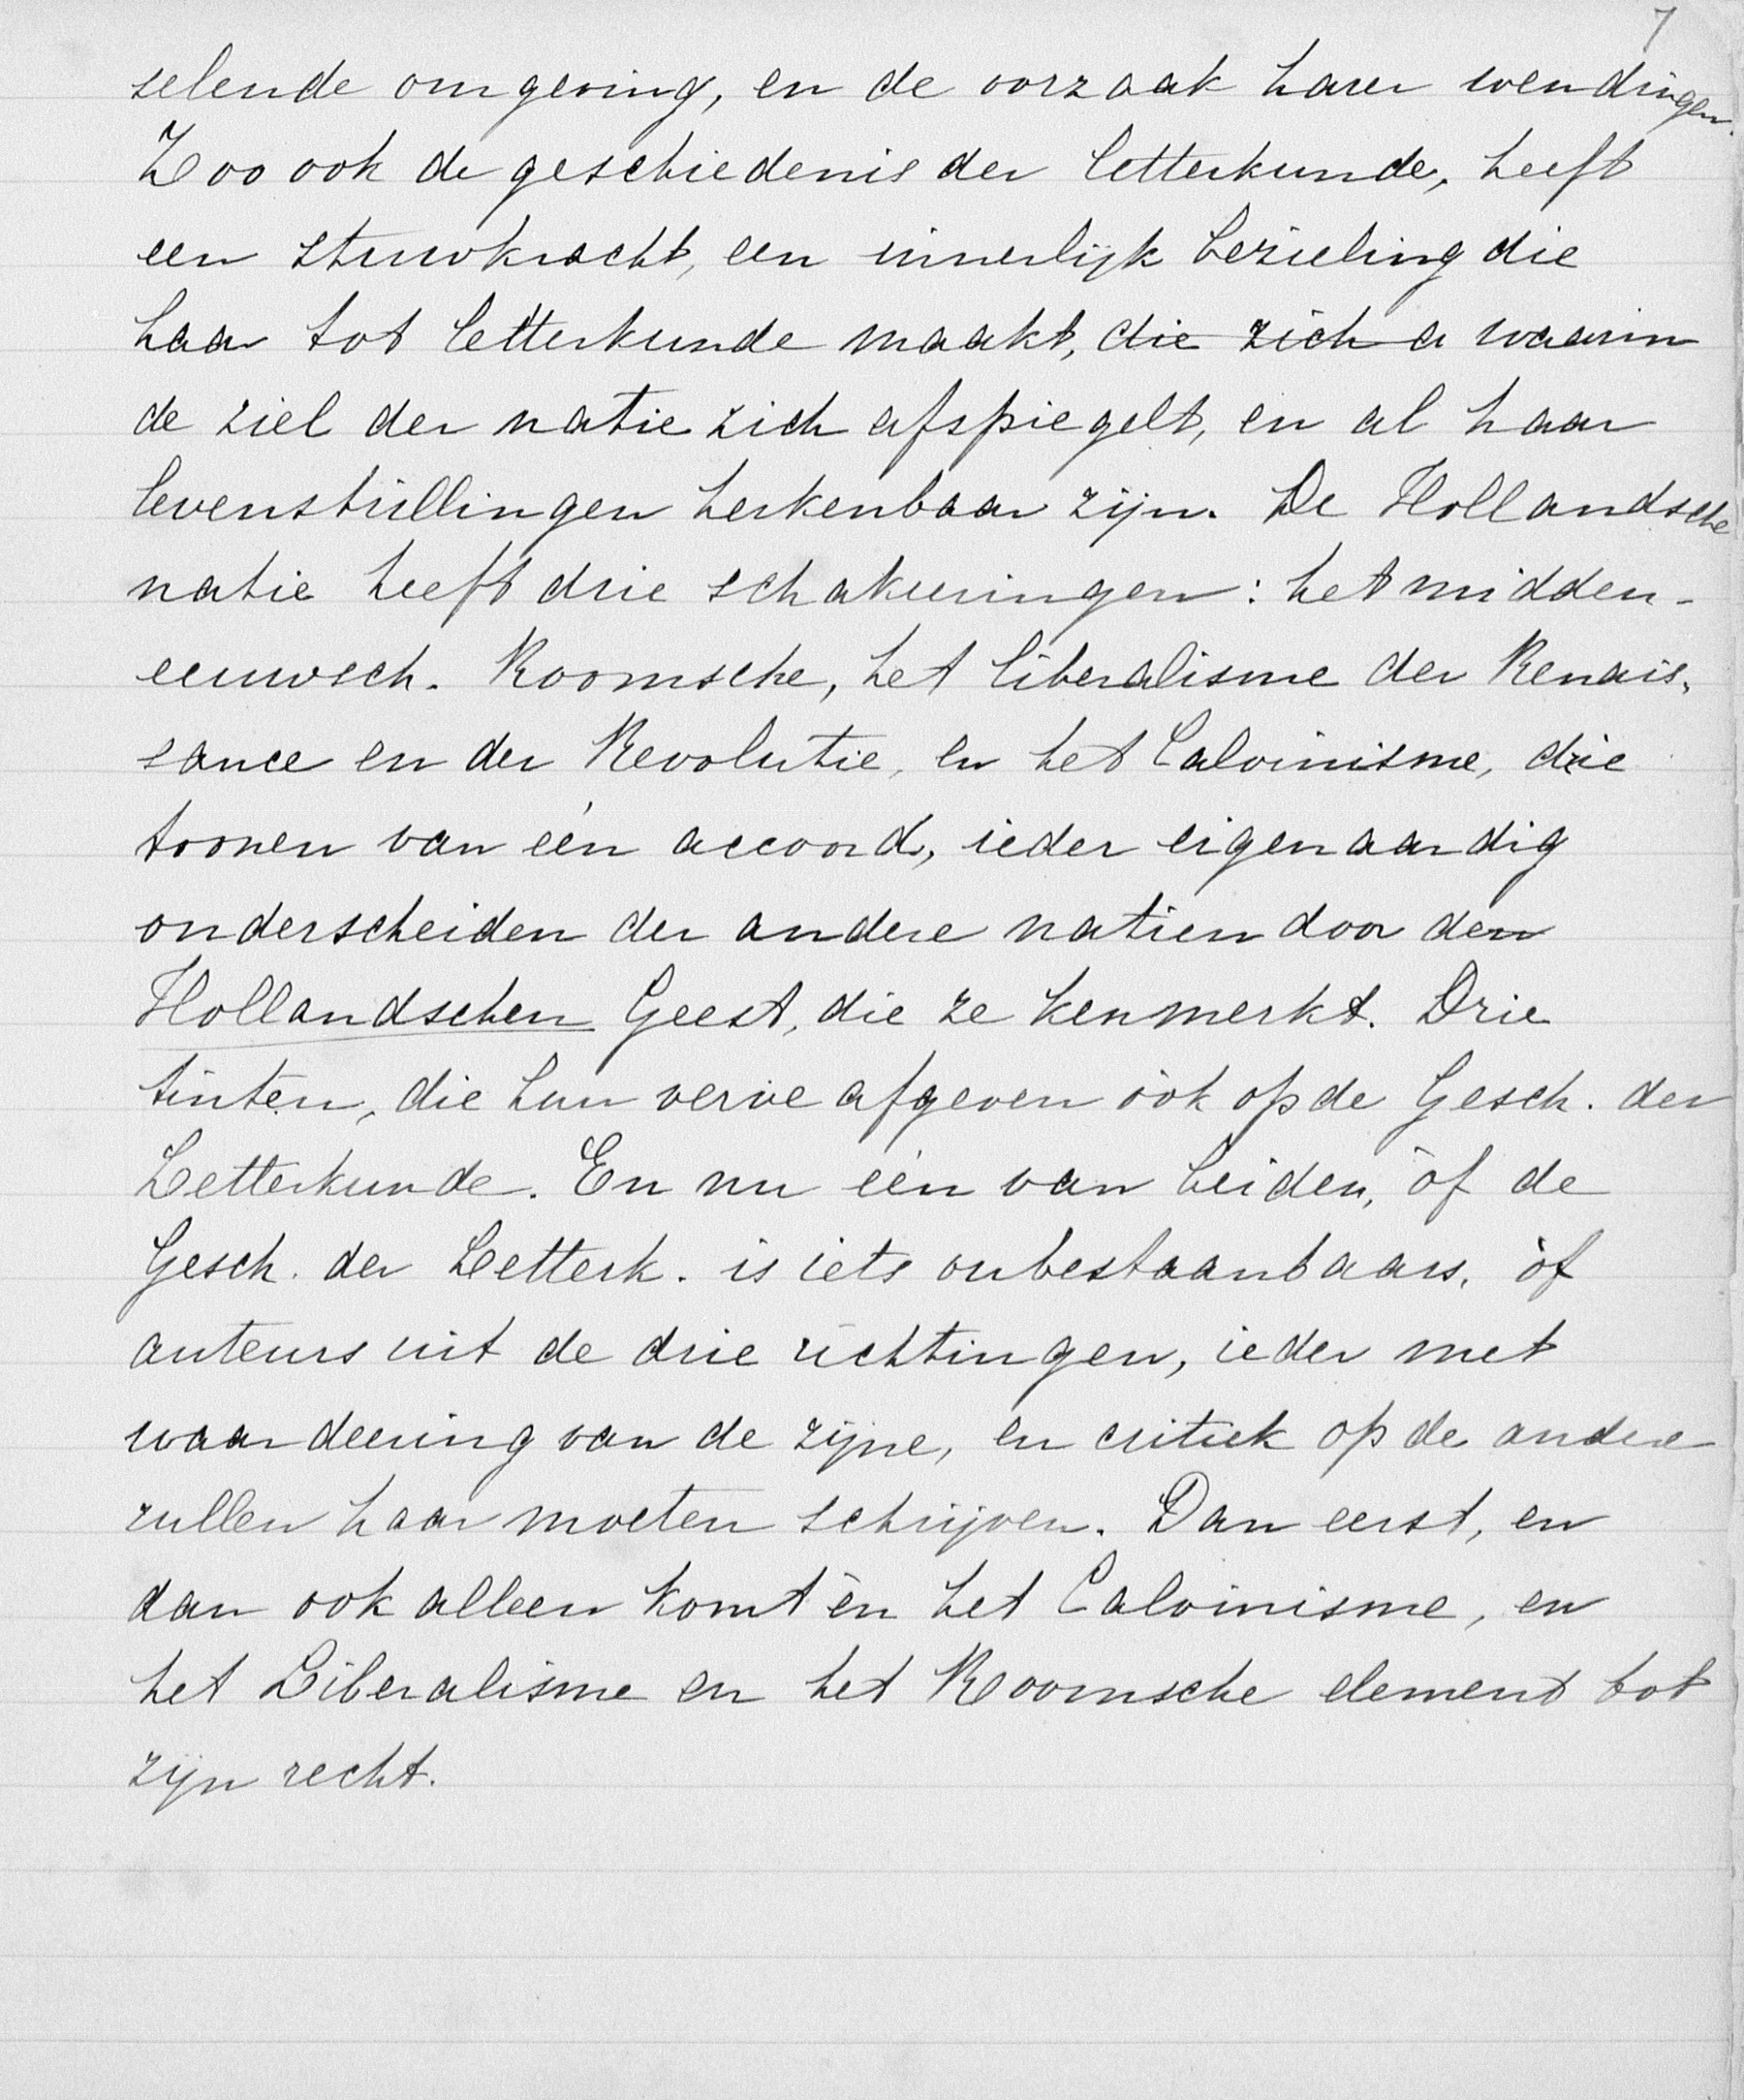 7
selende omgeving, en de oorzaak harer wendingen.
Zoo ook de geschiedenis der letterkunde, heeft
een stuwkracht, een innerlijk bezieling die
haar tot letterkunde maakt, die zich a waarin
de ziel der natie zich afspiegelt, en al haar
levenstrillingen herkenbaar zijn. De Hollandsche
natie heeft drie schakeeringen: het midden-
eeuwsch. Roomsche, het liberalisme der Renais-
sance en der Revolutie, en het Calvinisme, drie
toonen van één accoord, ieder eigenaardig
onderscheiden der andere natien door den
Hollandschen Geest, die ze kenmerkt. Drie
tinten, die hun verve afgeven óók op de Gesch. der
Letterkunde. En nu één van beiden, òf de
Gesch. der Letterk. is iets onbestaanbaars, òf
auteurs uit de drie richtingen, ieder met
waardeering van de zijne, en critiek op de andere
zullen haar moeten schrijven. Dan eerst, en
dan ook alleen komt èn het Calvinisme, en
het Liberalisme en het Roomsche element tot
zijn recht.